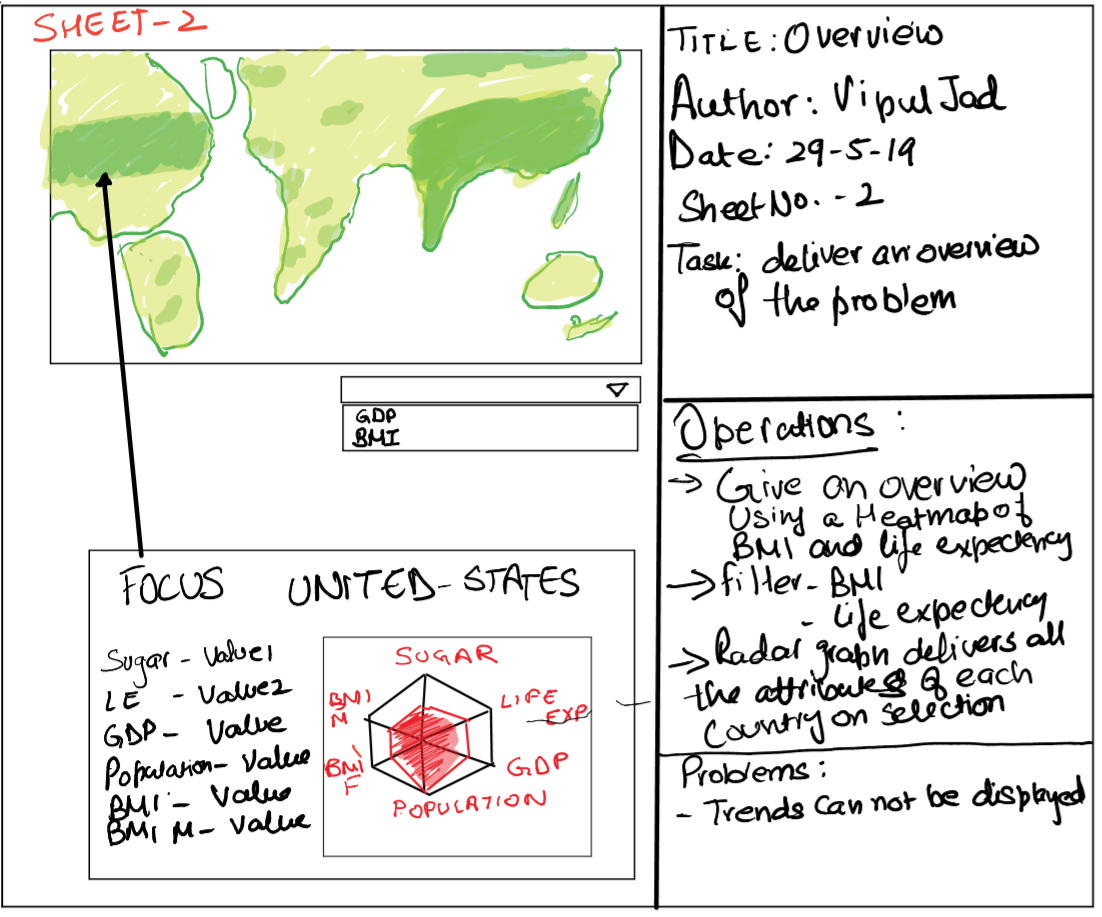 SHEET-2
GDP
BMI
FOCUS UNITED-STATES
Sugar - Value1
LE - Value2
GDP - Value
Population - Value
BMI - Value
BMI M - Value
SUGAR
LIFE
EXP
GDP
POPULATION
BMI
F
BMI
M
TITLE: Overview
Author: Vipul Jad
Date: 29-5-19
Sheet No. - 2
Task: deliver an overview
of the problem
Operations:
→ Give an overview
Using a Heatmap of
BMI and life expectency
→ filter - BMI
- Life expectency
→ Radar graph delivers all
the attributes of each
Country on selection
Problems:
- Trends can not be displayed